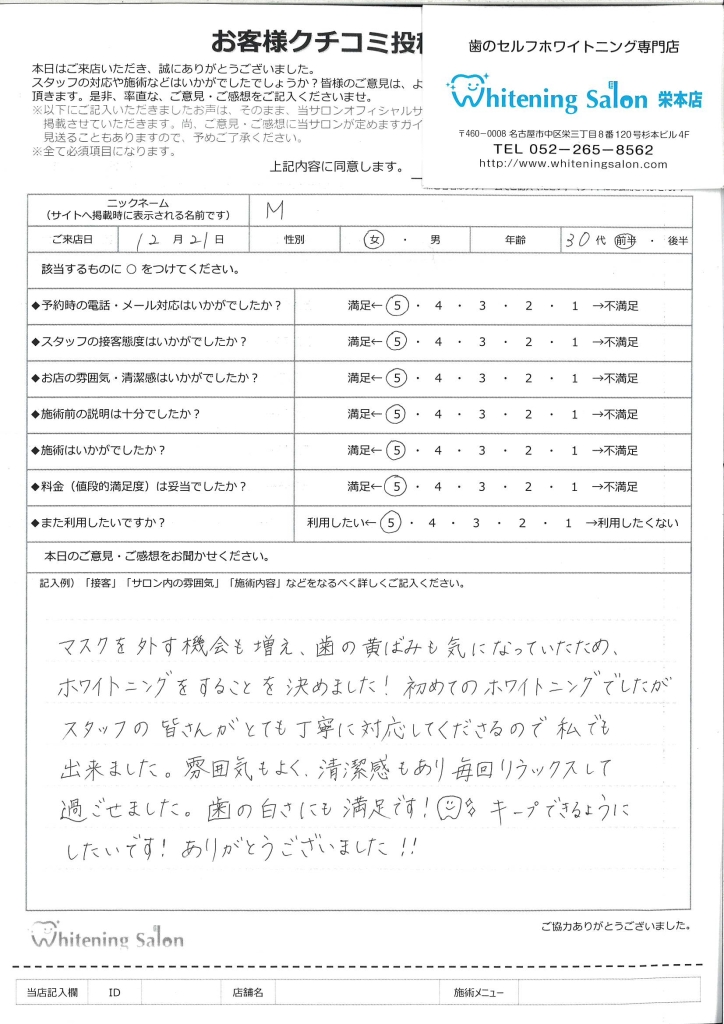 お客様クチコミ投稿
本日はご来店いただき、誠にありがとうございました。
スタッフの対応や施術などはいかがでしたでしょうか？皆様のご意見は、よ
頂きます。是非、率直な、ご意見・ご感想をご記入くださいませ。
※以下にご記入いただきましたお声は、そのまま、当サロンオフィシャルサ
掲載させていただきます。尚、ご意見・ご感想に当サロンが定めますガイ
見送ることもありますので、予めご了承ください。
※全て必須項目になります。
上記内容に同意します。
歯のセルフホワイトニング専門店
Whitening Salon 栄本店
〒460-0008 名古屋市中区栄三丁目8番120号杉本ビル4F
TEL 052-265-8562
http://www.whiteningsalon.com
ニックネーム
（サイトへ掲載時に表示される名前です）
M
ご来店日 12 月 21 日 性別 女 ・ 男 年齢 30 代 前半 ・ 後半
該当するものに ○ をつけてください。
◆予約時の電話・メール対応はいかがでしたか？ 満足← 5 ・ 4 ・ 3 ・ 2 ・ 1 →不満足
◆スタッフの接客態度はいかがでしたか？ 満足← 5 ・ 4 ・ 3 ・ 2 ・ 1 →不満足
◆お店の雰囲気・清潔感はいかがでしたか？ 満足← 5 ・ 4 ・ 3 ・ 2 ・ 1 →不満足
◆施術前の説明は十分でしたか？ 満足← 5 ・ 4 ・ 3 ・ 2 ・ 1 →不満足
◆施術はいかがでしたか？ 満足← 5 ・ 4 ・ 3 ・ 2 ・ 1 →不満足
◆料金（値段的満足度）は妥当でしたか？ 満足← 5 ・ 4 ・ 3 ・ 2 ・ 1 →不満足
◆また利用したいですか？ 利用したい← 5 ・ 4 ・ 3 ・ 2 ・ 1 →利用したくない
本日のご意見・ご感想をお聞かせください。
記入例）「接客」「サロン内の雰囲気」「施術内容」などをなるべく詳しくご記入ください。
マスクを外す機会も増え、歯の黄ばみも気になっていたため、
ホワイトニングをすることを決めました！初めてのホワイトニングでしたが
スタッフの皆さんがとても丁寧に対応してくださるので私でも
出来ました。雰囲気もよく、清潔感もあり毎回リラックスして
過ごせました。歯の白さにも満足です！キープできるように
したいです！ありがとうございました!!
Whitening Salon
ご協力ありがとうございました。
当店記入欄 ID 店舗名 施術メニュー